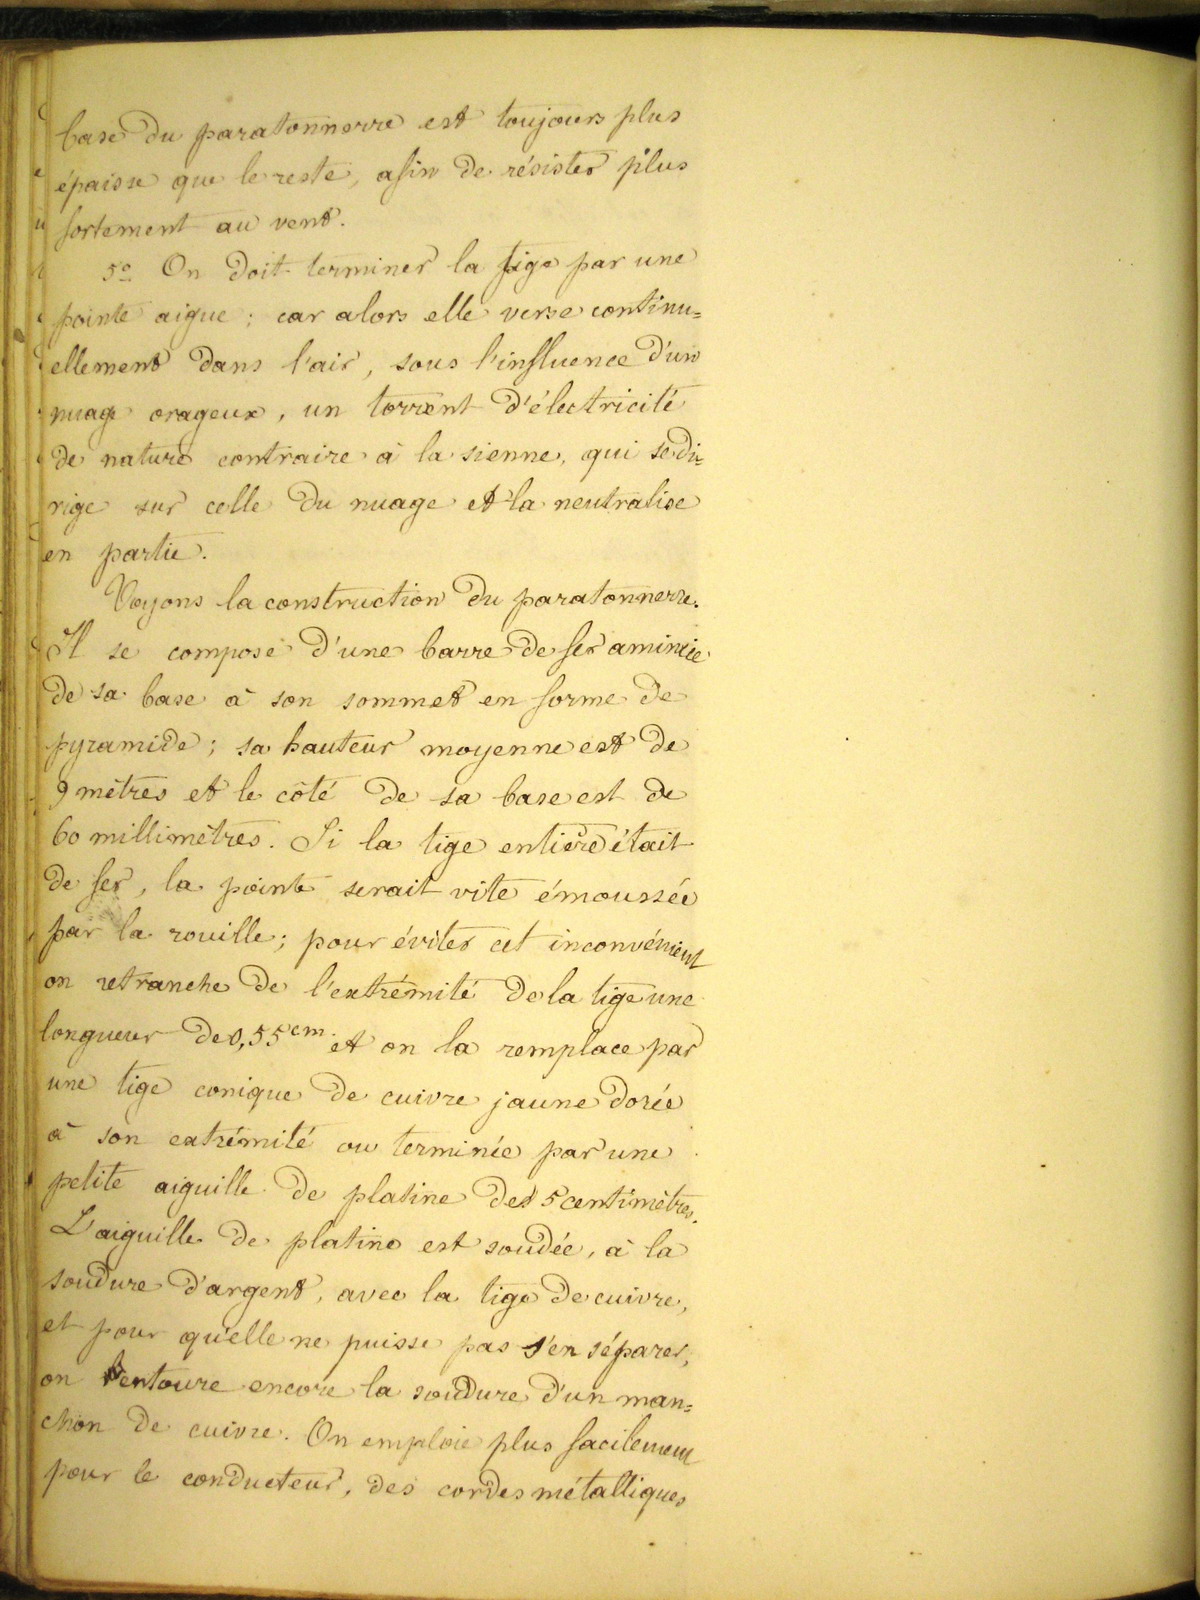 base du paratonnerre est toujours plus
épaisse que le reste, afin de résister plus
fortement au vent.
5º On doit terminer la tige par une
pointe aigue ; car alors elle verse continu=
ellement dans l'air, sous l'influence d'un
nuage orageux, un torrent d'électricité
de nature contraire à la sienne, qui se di=
rige sur celle du nuage et la neutralise
en partie.
Voyons la construction du paratonnerre.
Il se compose d'une barre de fer amincie
de sa base à son sommet en forme de
pyramide ; sa hauteur moyenne est de
9 mètres et le côté de sa base est de
60 millimètres. Si la tige entière était
de fer, la pointe serait vite émoussée
par la rouille ; pour éviter cet inconvénient
on retranche de l'extrémité de la tige une
longueur de 0,55cm. et on la remplace par
une tige conique de cuivre jaune dorée
à son extrémité ou terminée par une
petite aiguille de platine de 5 centimètres.
L'aiguille de platine est soudée, à la
soudure d'argent, avec la tige de cuivre,
et pour qu'elle ne puisse pas s'en séparer,
on entoure encore la soudure d'un man=
chon de cuivre. On emploie plus facilement
pour le conducteur, des cordes métalliques